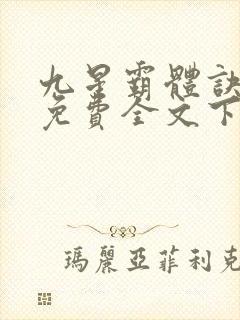 九星霸體訣
免費全文下
瑪麗亞菲利克